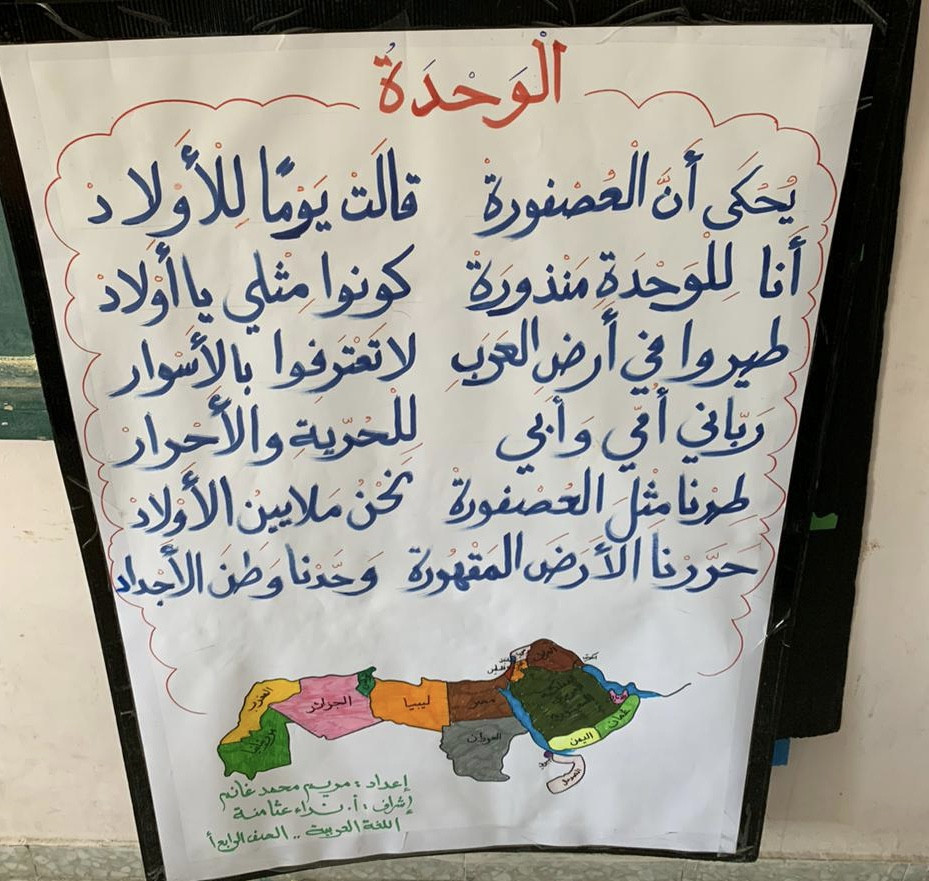 الْوَحْدَةُ
يُحْكَى أَنَّ الْعُصْفورة قالَتْ يَوْمًا لِلْأَوْلادْ
أَنا لِلْوَحْدَةِ مَنْذورَة كونوا مِثْلي يا أَوْلادْ
طيروا في أَرْضِ العَرَبِ لا تَعْتَرِفوا بالأَسْوار
رَبّاني أُمّي وَأَبي لِلْحُرّيةِ والأَحْرارْ
طِرْنا مِثْلَ العُصْفورَة نَحْنُ مَلايينُ الأَوْلادْ
حَرَّرْنا الأَرْضَ المَقْهورة وَحَّدْنا وَطَنَ الأَجْداد
المغرب
الجزائر
ليبيا
مصر
العراق
السودان
اليمن
عُمان
الصومال
إعداد : مريم محمد غانم
إشراف : أ. نداء عثامنة
اللغة العربية .. الصف الرابع أ